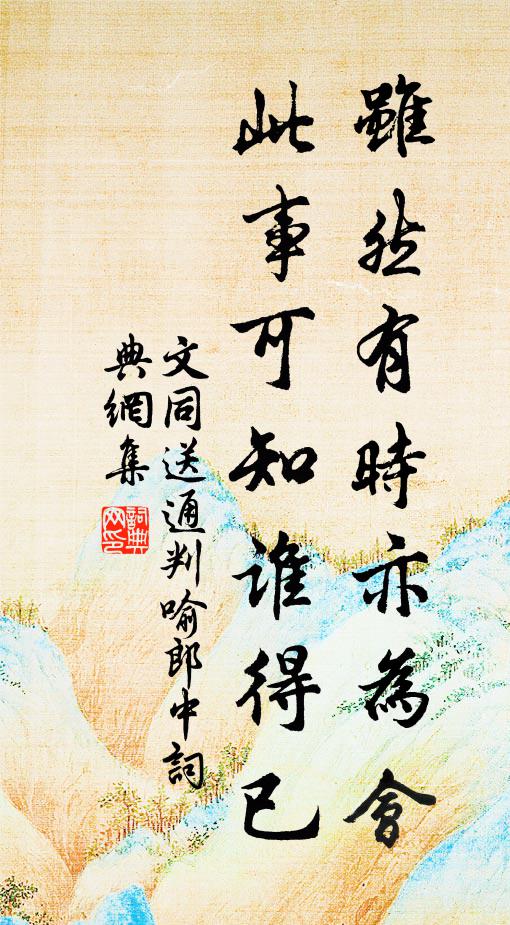 雖然有時亦為會
此事可知誰得已
文同送通判喻郎中詞
典網集
詞典網印